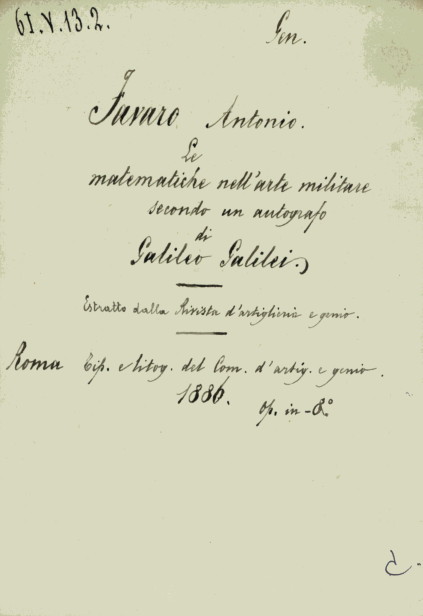 61.V.13.2.
Gen.
Favaro Antonio.
Le
matematiche nell'arte militare
secondo un autografo
di
Galileo Galilei.
Estratto dalla Rivista d'artiglieria e genio.
Roma Tip. e litog. del Com. d'artig. e genio.
1886.
op. in-8°